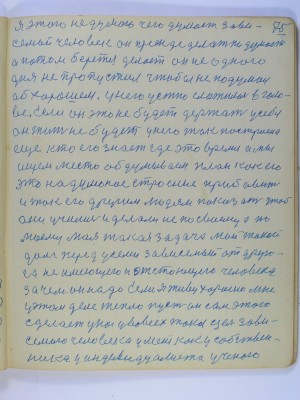 75
я этого не думаю чего думает зави-
семай человек он прежде делат подумает
а потом берется делает он не одного
дня не пропустил чтобы не подумал
об хорошем. у него устно сложился в голо-
ве, если он это не будет держат у себя
он жит не будет у него тоже построено
еще кто его знает где это время а мы
ищем место обдумываем план как его
это надуманое строение прибавить
и тоже его другим людям показат чтоб
они училис и делали не по своему а по
моему моя такая задача мой такой
долг перед усеми зависемый от друго-
га не имеющего и жестоющего человека
зачем он надо если я живу хорошо мне
у этом деле тепло пуст он сам этого
сделает у нас у во всех такая цел зави-
семого человека умей как у собствен-
ника у индевидуалиста ученого